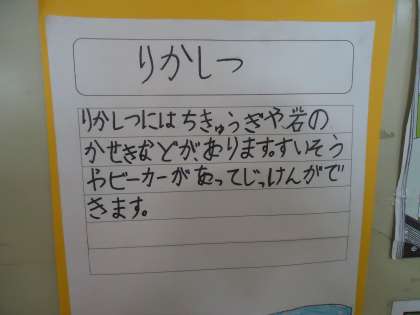 りかしつ
りかしつにはちきゅうぎや岩の
かせきなどが、あります。すいそう
やビーカーがあってじっけんがで
きます。